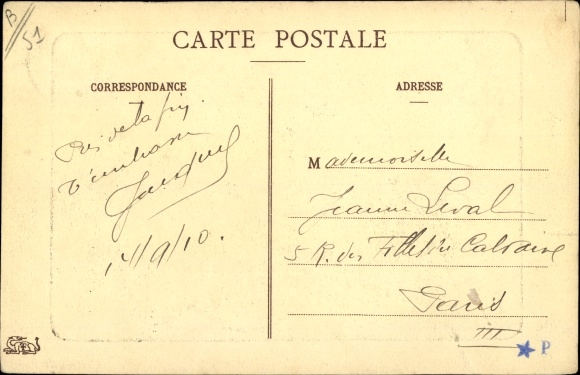 B
51
CARTE POSTALE
CORRESPONDANCE
ADRESSE
t'embrasse
Jacques
14/9/10.
Mademoiselle
Jeanne Leval
5 R. des Filles du Calvaire
Paris
III
P